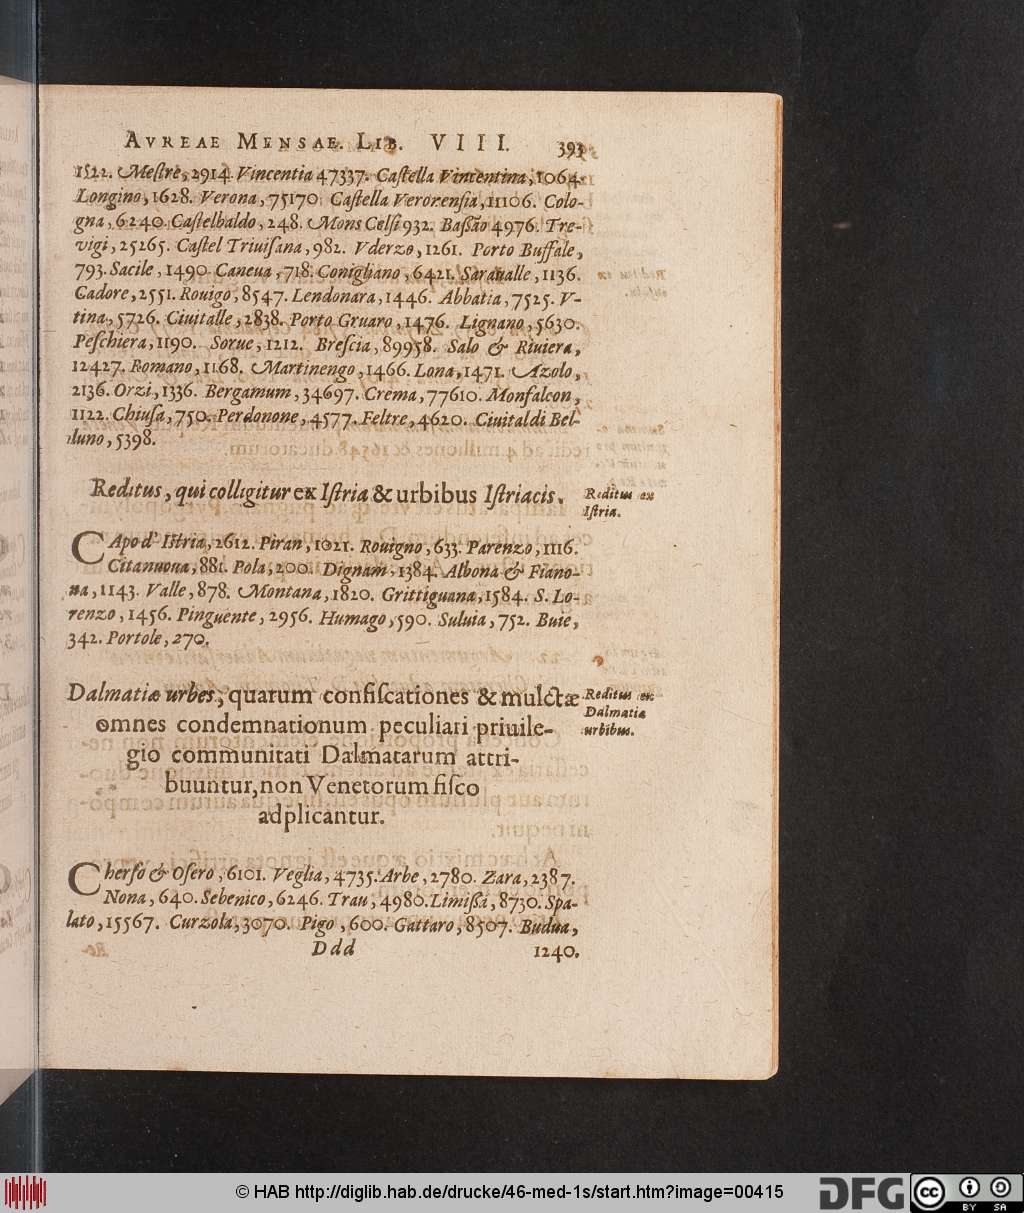 AVREAE MENSAE. LIB. VIII. 393
1522. Mestre, 2914 Vincentia 47337. Castella Vincentina, 1064.
Longino, 1628. Verona, 75170 Castella Veronensia, 11106. Colo-
gna, 6240. Castelbaldo, 248. Mons Celsi 932. Baßão 4976. Tre-
vigi, 25265. Castel Triuisana, 982. Vderzo, 1261. Porto Buffale,
793. Sacile, 1490 Caneua, 718. Conigliano, 6421. Saraualle, 1136.
Cadore, 2551. Rouigo, 8547. Lendonara, 1446. Abbatia, 7525. V-
tina, 5726. Ciuitalle, 2838. Porto Gruaro, 1476. Lignano, 5630.
Peschiera, 1190. Sorue, 1212. Brescia, 89958. Salo & Riuiera,
12427. Romano, 1168. Martinengo, 1466. Lona, 1471. Azolo,
2136. Orzi, 1336. Bergamum, 34697. Crema, 77610. Monfalcon,
1122. Chiusa, 750. Perdonone, 4577. Feltre, 4620. Ciuitaldi Bel-
luno, 5398.
Reditus, qui colligitur ex Istria & urbibus Istriacis.
Reditus ex
Istria.
CApo d' Istria, 2612. Piran, 1021. Rouigno, 633. Parenzo, 1116.
Citanuoua, 881. Pola, 200. Dignam, 1384. Albona & Fiano-
na, 1143. Valle, 878. Montana, 1820. Grittiguana, 1584. S. Lo-
renzo, 1456. Pinguente, 2956. Humago, 590. Suluia, 752. Buie,
342. Portole, 270.
Dalmatiæ urbes, quarum confiscationes & mulctæ
omnes condemnationum peculiari priuile-
gio communitati Dalmatarum attri-
buuntur, non Venetorum fisco
adplicantur.
Reditus ex
Dalmatiæ
urbibus.
Cherso & Osero, 6101. Veglia, 4735. Arbe, 2780. Zara, 2387.
Nona, 640. Sebenico, 6246. Trau, 4980. Limißa, 8730. Spa-
lato, 15567. Curzola, 3070. Pigo, 600. Gattaro, 8507. Budua,
Ddd 1240.
© HAB http://diglib.hab.de/drucke/46-med-1s/start.htm?image=00415
DFG cc BY SA